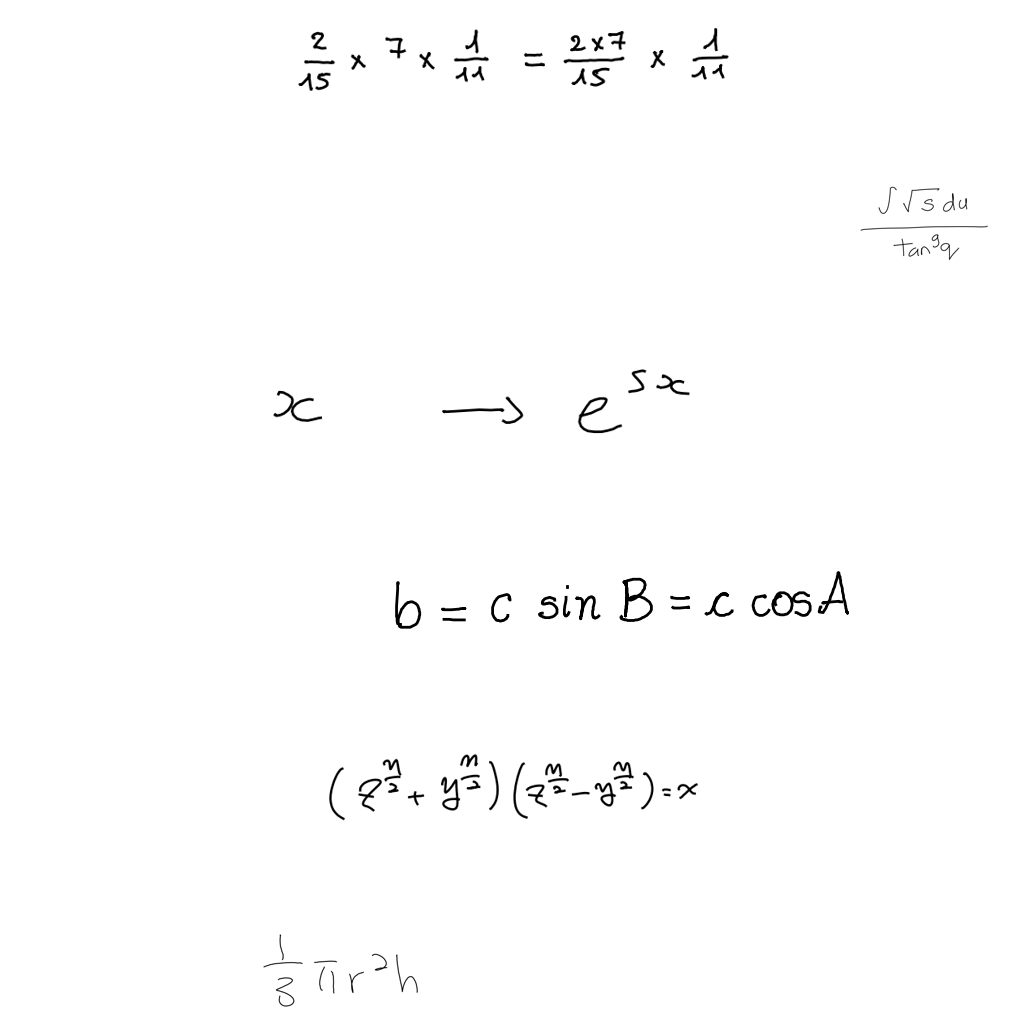 \frac{2}{15} \times 7 \times \frac{1}{11} = \frac{2 \times 7}{15} \times \frac{1}{11}
\frac{\int \sqrt{s} du}{\tan^{9} q}
x \rightarrow e^{sx}
b = c \sin B = c \cos A
(z^{\frac{n}{2}} + y^{\frac{n}{2}})(z^{\frac{n}{2}} - y^{\frac{n}{2}}) = x
\frac{1}{3} \pi r^{2} h